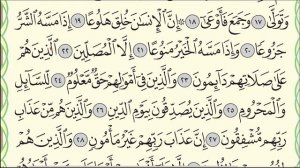 وَتَوَلَّىٰ ١٧ وَجَمَعَ فَأَوْعَىٰٓ ١٨ ۞ إِنَّ ٱلْإِنسَٰنَ خُلِقَ هَلُوعًا ١٩ إِذَا مَسَّهُ ٱلشَّرُّ
جَزُوعًا ٢٠ وَإِذَا مَسَّهُ ٱلْخَيْرُ مَنُوعًا ٢١ إِلَّا ٱلْمُصَلِّينَ ٢٢ ٱلَّذِينَ هُمْ
عَلَىٰ صَلَاتِهِمْ دَآئِمُونَ ٢٣ وَٱلَّذِينَ فِىٓ أَمْوَٰلِهِمْ حَقٌّ مَّعْلُومٌ ٢٤ لِّلسَّآئِلِ
وَٱلْمَحْرُومِ ٢٥ وَٱلَّذِينَ يُصَدِّقُونَ بِيَوْمِ ٱلدِّينِ ٢٦ وَٱلَّذِينَ هُم مِّنْ عَذَابِ
رَبِّهِم مُّشْفِقُونَ ٢٧ إِنَّ عَذَابَ رَبِّهِمْ غَيْرُ مَأْمُونٍ ٢٨ وَٱلَّذِينَ هُمْ